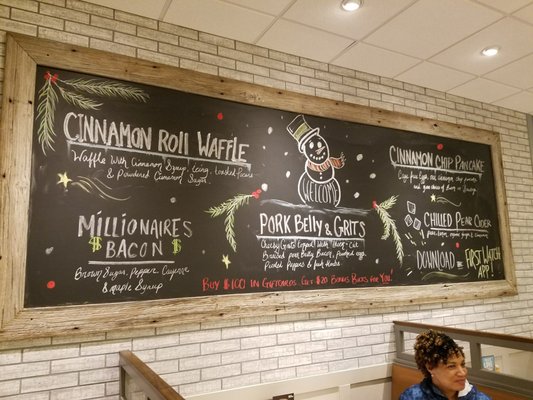 CINNAMON ROLL WAFFLE
Waffle With Cinnamon Syrup, Icing, toasted
& Powdered Cinnamon Sugar.
MILLIONAIRES
$ BACON $
Brown Sugar, Pepper, Cayenne
& Maple Syrup
WELCOME
PORK BELLY & GRITS
Cheesy Grits topped With Thick-Cut
Braised pork Belly Bacon, poached eggs,
& fresh Herbs.
BUY $100 IN GIFTCARDS GET $20 BONUS BUCKS FOR YOU!
CINNAMON CHIP PANCAKE
CHILLED PEAR CIDER
DOWNLOAD THE FIRST WATCH
APP!